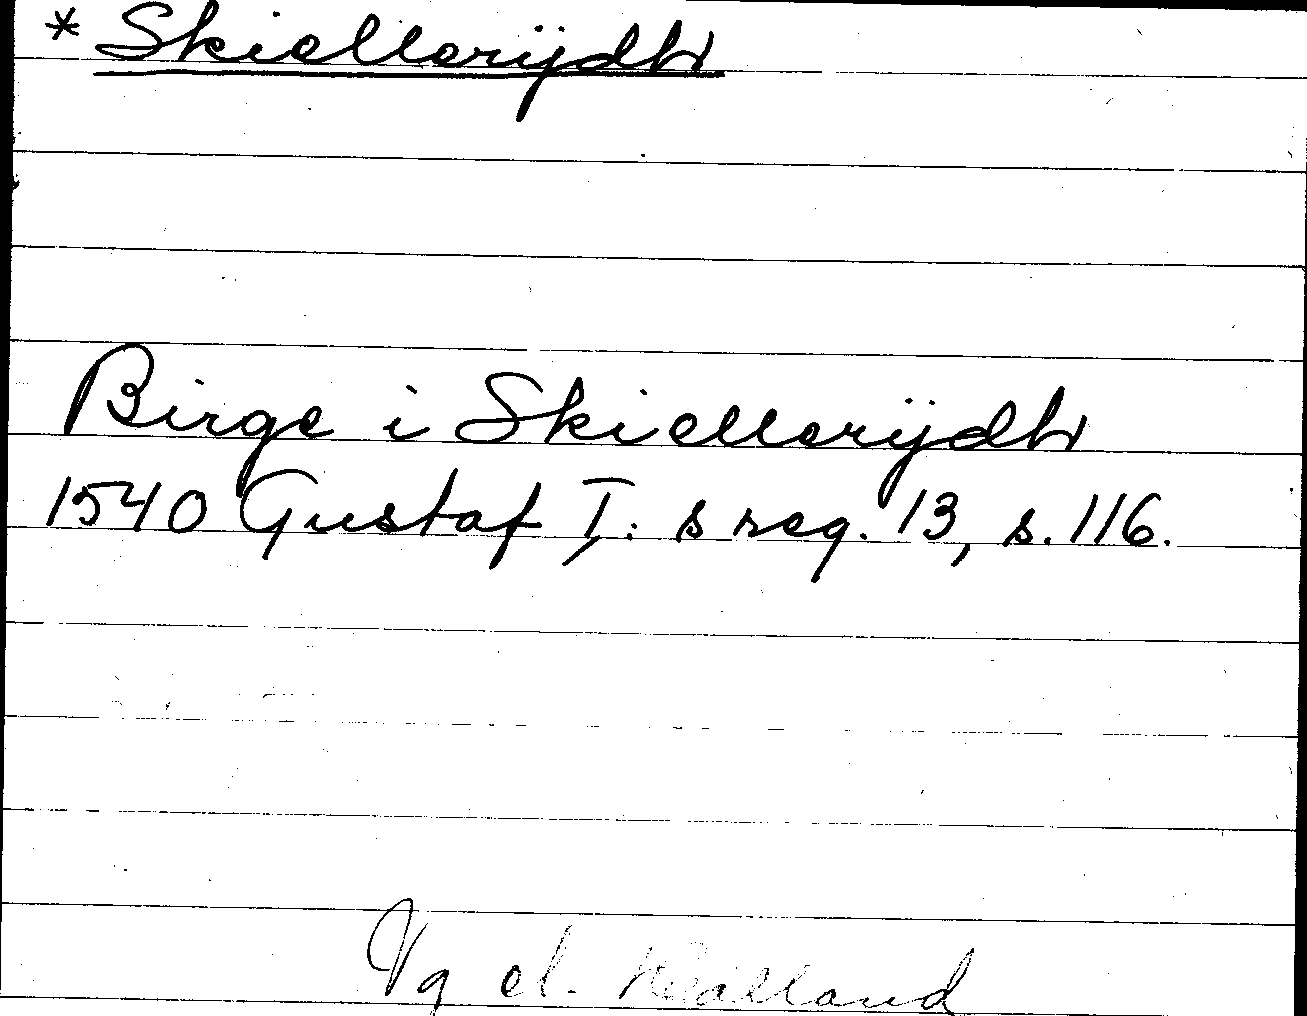 * Skiellerÿdh
Birge i Skiellerÿdh
1540 Gustaf I: s reg. 13, s. 116.
Vg el. Halland